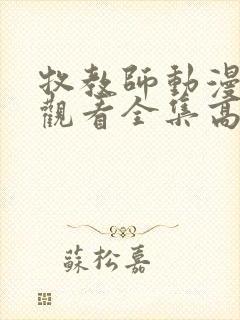 牧教師動漫
觀看全集高
蘇松嘉